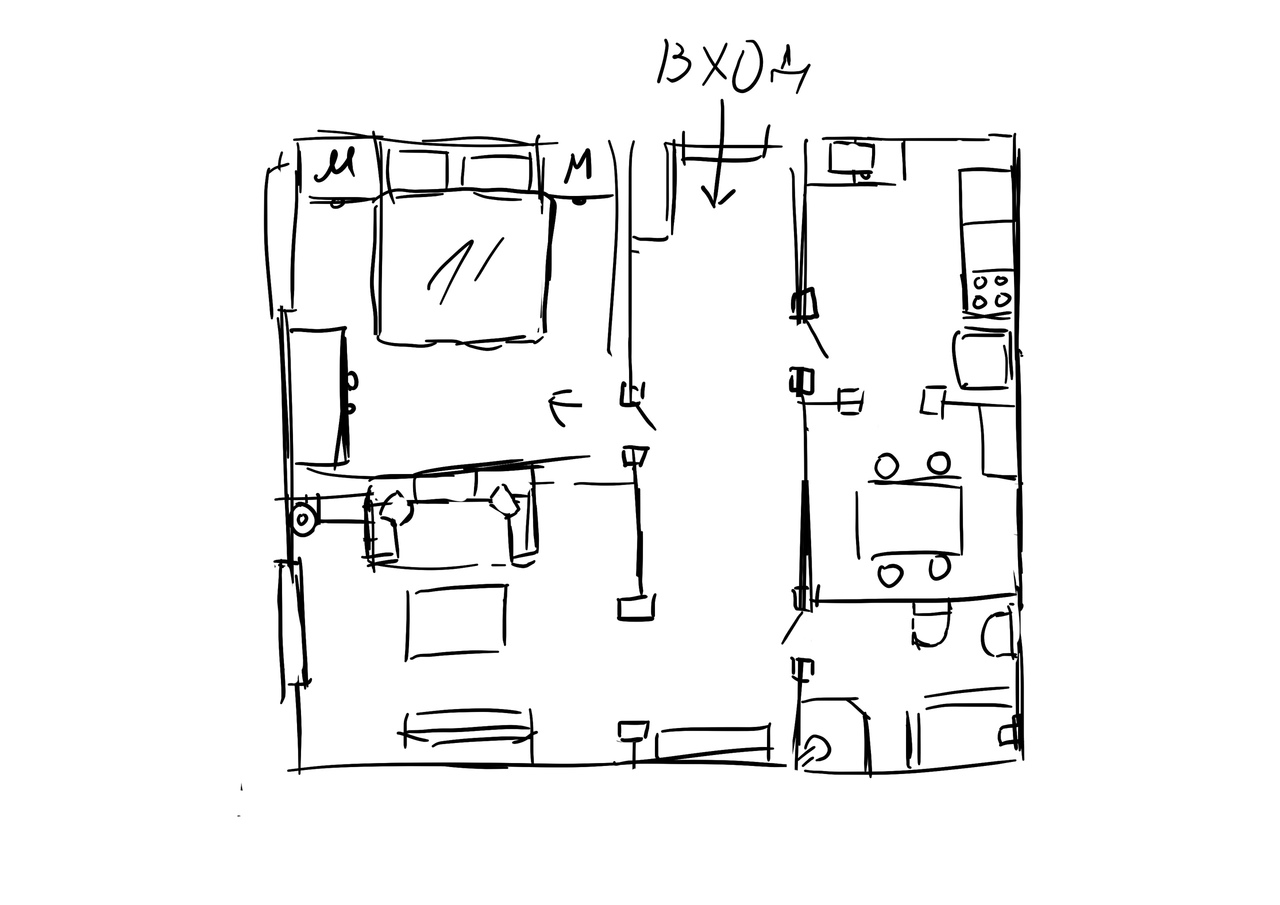 ВХОД
М М